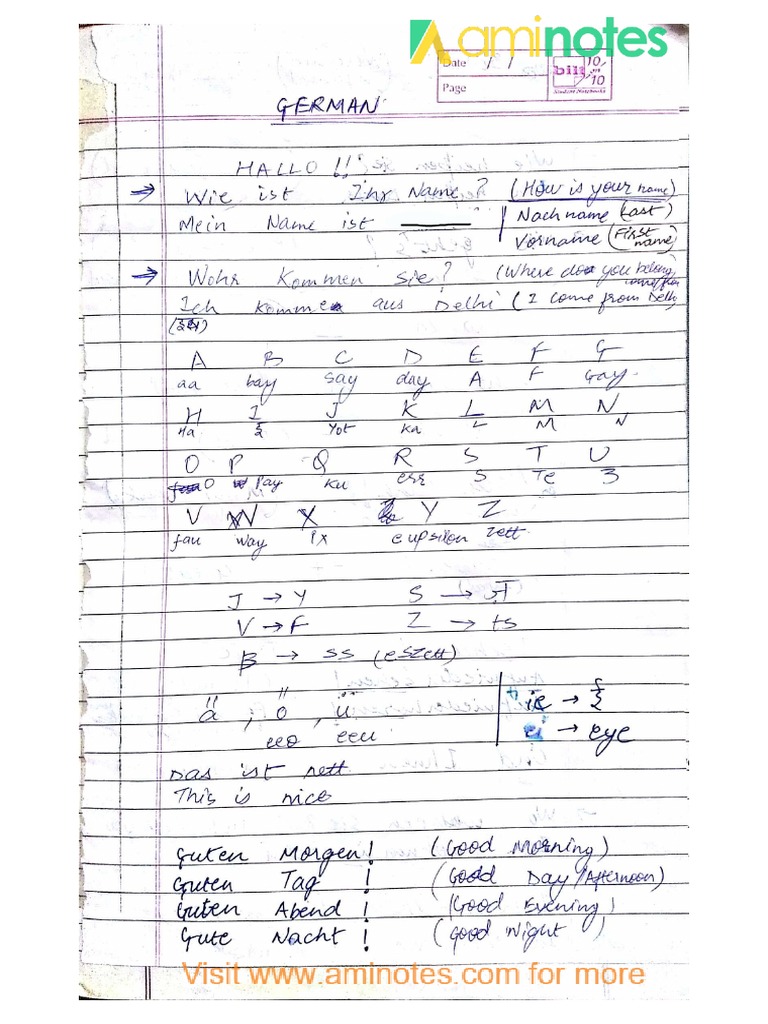 aminotes
Date
Page
bilt 10/10
Student Notebooks
GERMAN
HALLO !!
⇒ Wie ist Ihr Name? (How is your name)
Mein Name ist ______ | Nachname (Last)
Vorname (First name)
⇒ Wohr Kommen sie? (Where do you belong
come from
Ich komme aus Delhi (I come from Delhi
A B C D E F G
aa bay say day A F Gay
H I J K L M N
Ha ई Yot ka L M N
O P Q R S T U
O Pay Ku err S Te
V W X Y Z
fau way ix eupsilon zett
J → Y S →
V → F Z → ts
ß → ss (eszett)
ä, ö, ü
eeo eeu
ie → ई
ei → eye
Das ist nett
This is nice
Guten Morgen! (Good Morning)
Guten Tag ! (Good Day/Afternoon)
Guten Abend! (Good Evening)
Gute Nacht! (Good Night)
Visit www.aminotes.com for more